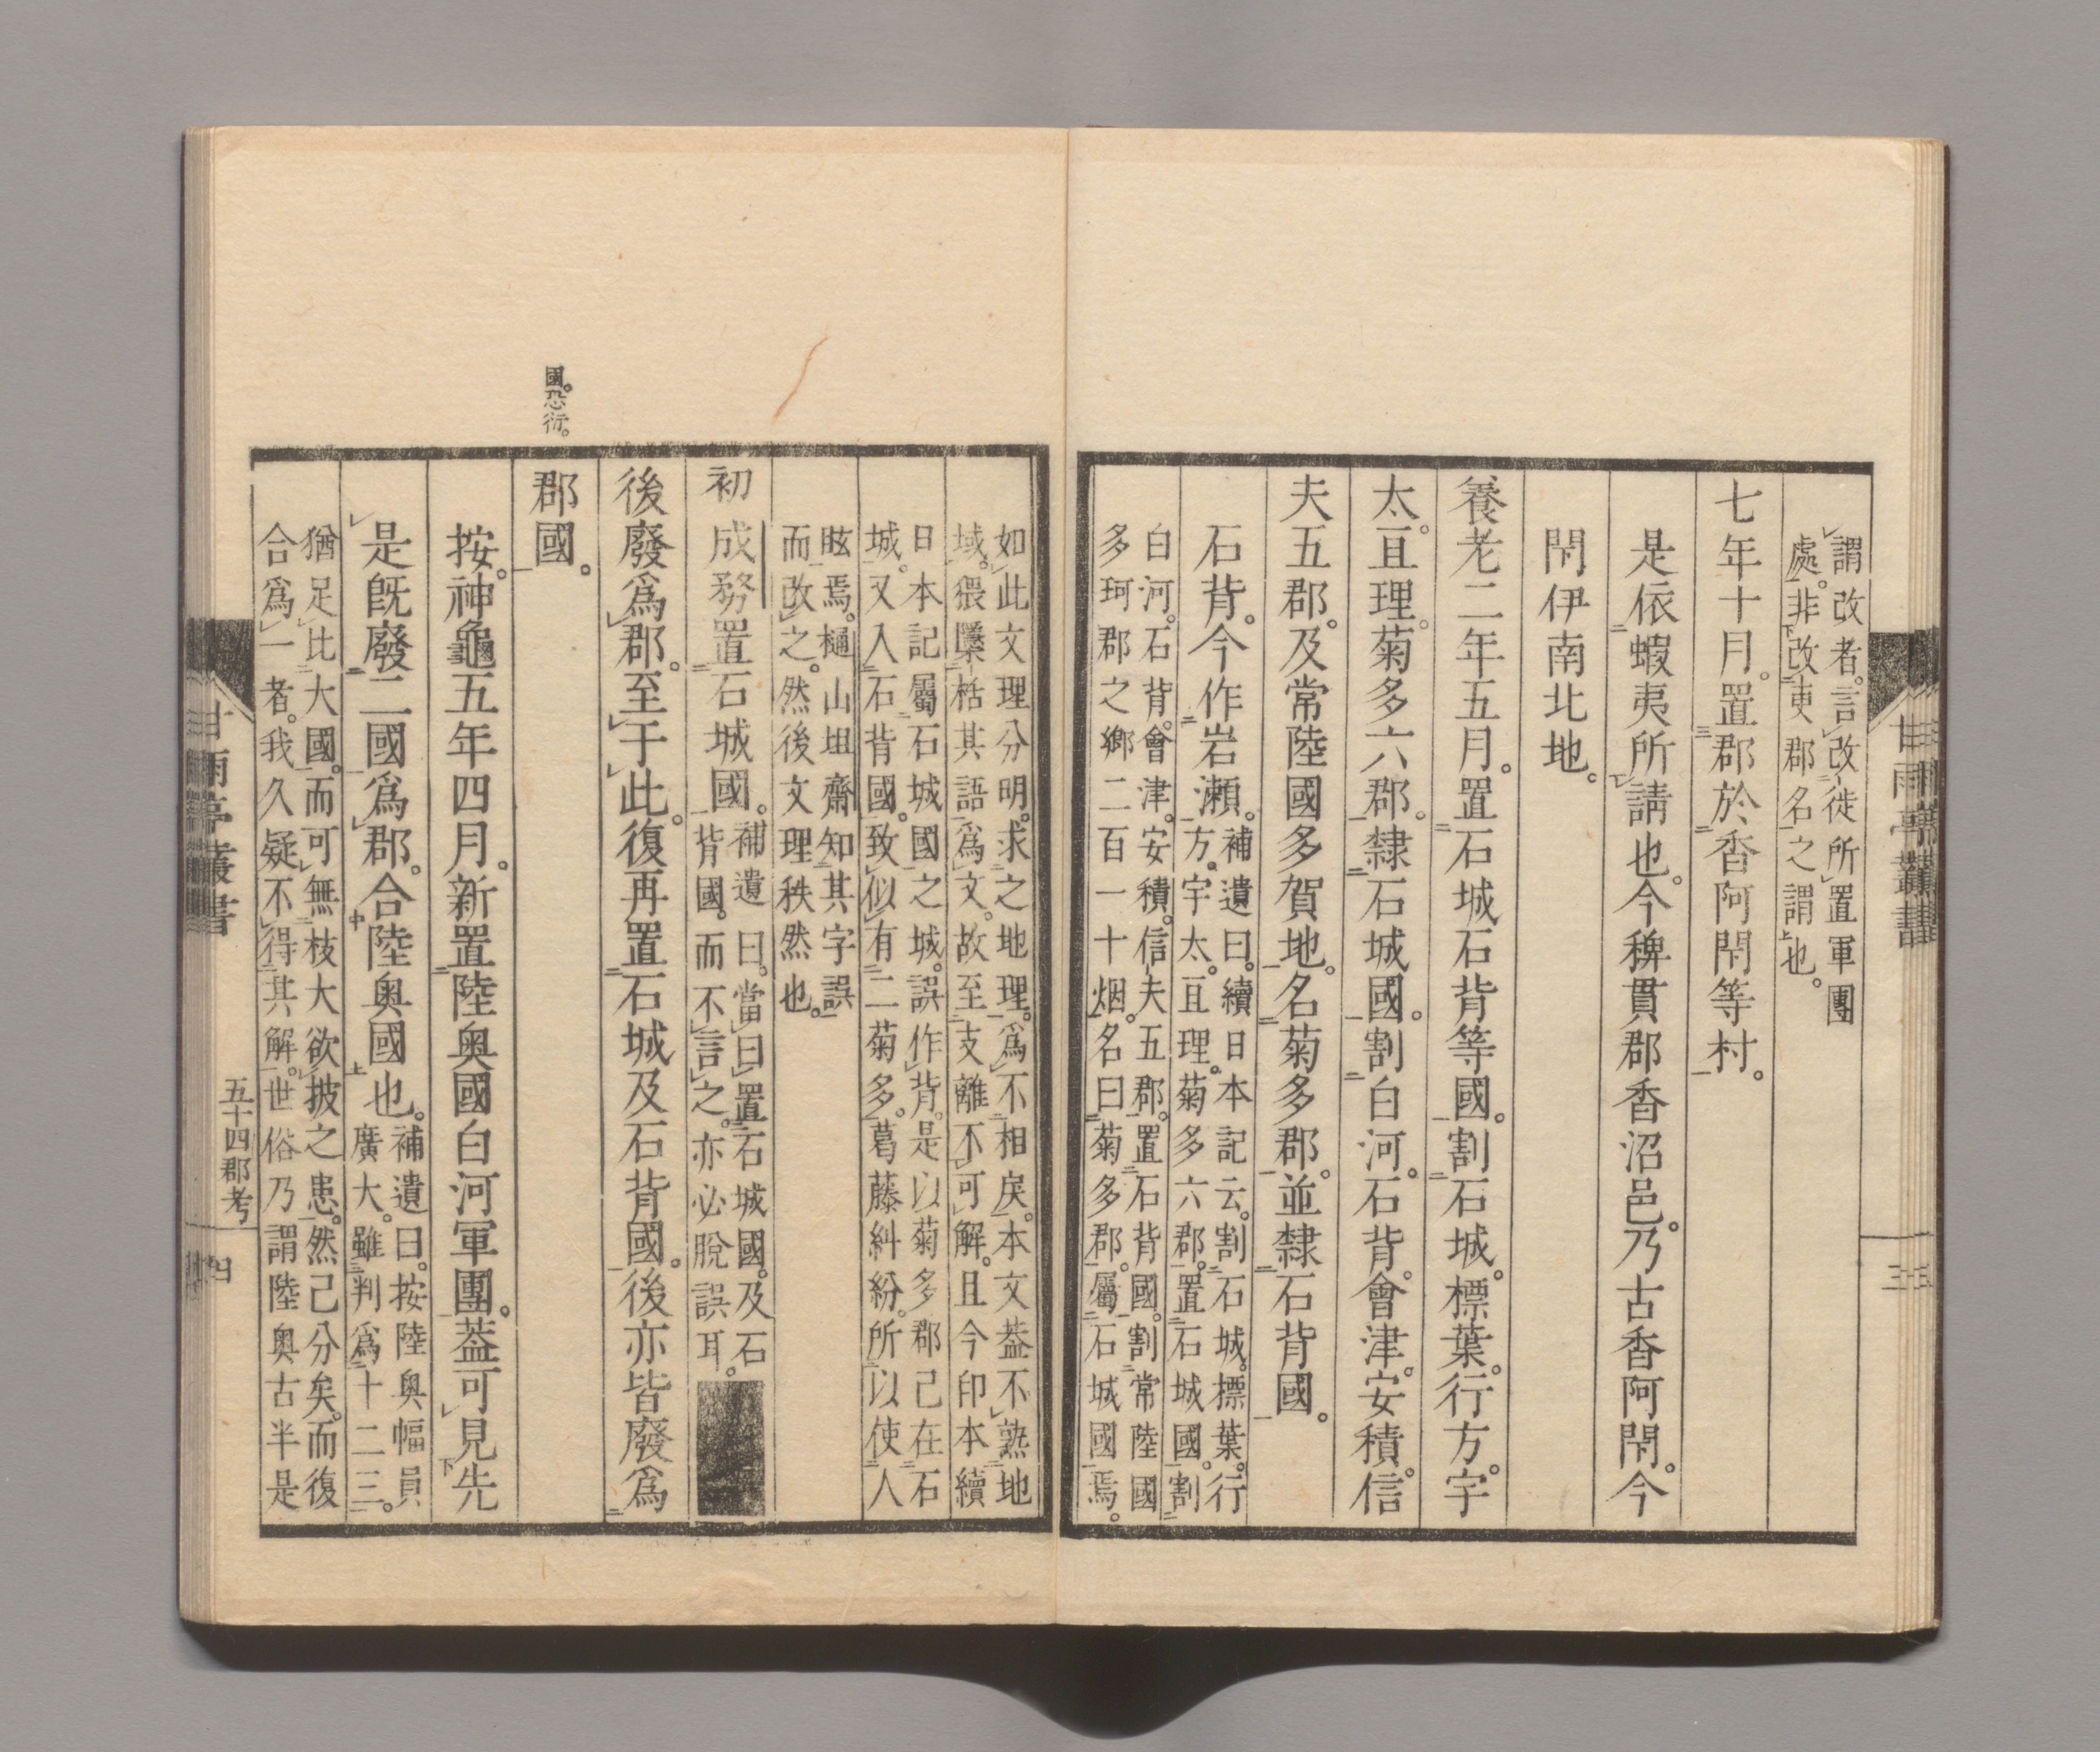 謂改者。言改徙所置軍團
處。非改吏郡名之謂也。
七年十月。置郡於香阿閇等村。
是依蝦夷所請也。今稗貫郡香沼邑。乃古香阿閇。今
閇伊南北地。
養老二年五月。置石城石背等國。割石城。標葉。行方。宇
太。亘理。菊多六郡。隸石城國。割白河。石背。會津。安積。信
夫五郡。及常陸國多賀地。名菊多郡。並隸石背國。
石背。今作岩瀨。補遺曰。續日本記云。割石城。標葉。行
方。宇太。亘理。菊多六郡。置石城國。割
白河。石背。會津。安積。信夫五郡。置石背國。割常陸國
多珂郡之鄉二百一十烟。名曰菊多郡。屬石城國焉。
如此文理分明。求之地理。爲不相戾。本文葢不熟地
域。猥檃栝其語爲文。故至支離不可解。且今印本續
日本記屬石城國之城。誤作背。是以菊多郡已在石
城。又入石背國。致似有二菊多。葛藤糾紛。所以使人
眩焉。樋山坦齋知其字誤
而改之。然後文理秩然也。
初成務置石城國。補遺曰。當曰置石城國。及石
背國。而不言之。亦必脫誤耳。
後廢爲郡。至于此。復再置石城及石背國。後亦皆廢爲
國。恐衍。
郡國。
按。神龜五年四月。新置陸奥國白河軍團。葢可見先
是既廢二國爲郡。合陸奥國也。補遺曰。按陸奥幅員
廣大。雖判爲十二三。
猶足比大國。而可無枝大欲披之患。然已分矣。而復
合爲一者。我久疑不得其解。世俗乃謂陸奥古半是
甘雨亭叢書
五十四郡考
四
甘雨亭叢書
三